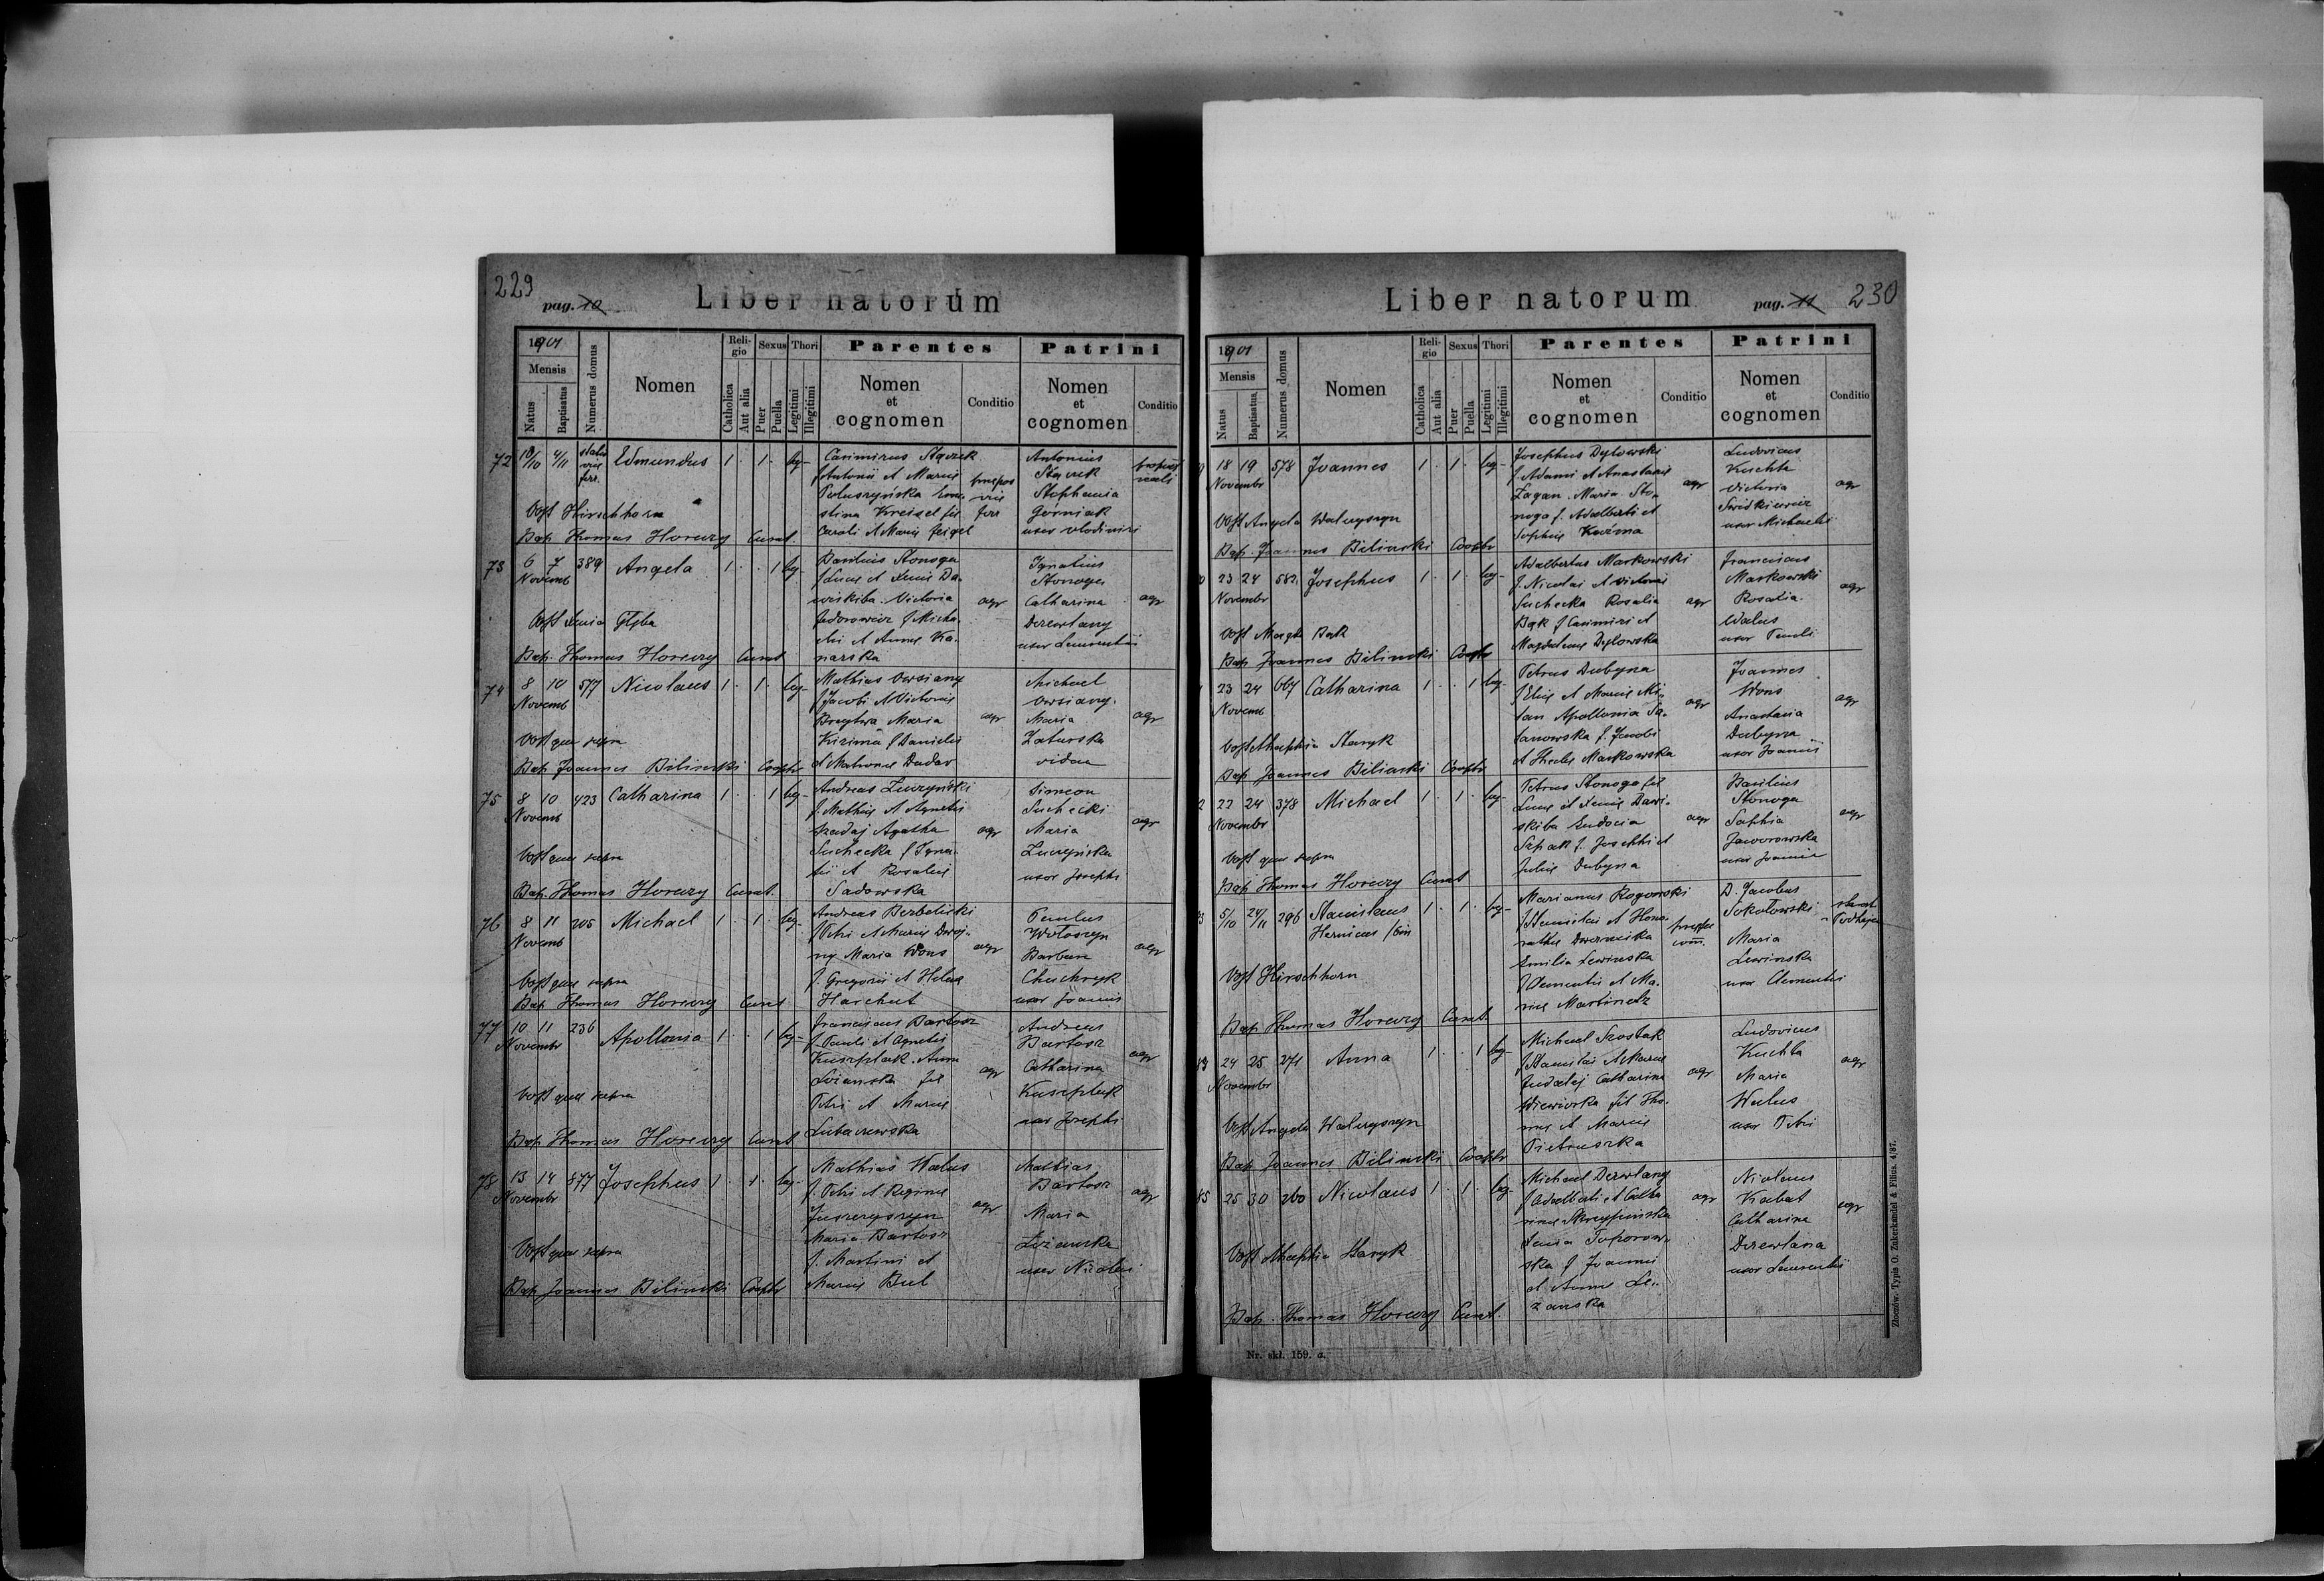 229
pag. 10
Liber natorum
1901
Mensis
Natus
Baptisatus
Numerus domus
Nomen
Religio
Catholica
Aut alia
Sexus
Puer
Puella
Thori
Legitimi
Illegitimi
Parentes
Nomen et cognomen
Conditio
Patrini
Nomen et cognomen
Conditio
72 18/10 4/11 Edmundus 1 1 leg
Casimirus Stączek
f Antonii et Mariae
Kreisel fil
Caroli et Mariae Feigel
Antonius
Stączek
Stephania
Górniak
uxor Vlodimiri
Obst Hirschhorn
Bap. Thomas Horeczy Curat.
73 6 7 389 Angela 1 1 leg
Novemb
Basilius Stonoga
f Lucae et Xeniae Da-
wiskiba. Victoria
Fedorowicz f Micha-
elis et Annae Ka-
narska
agr
Ignatius
Stonoga
Catharina
Derewlany
uxor Laurentii
agr
Obst Xenia Głęba
Bap. Thomas Horeczy Curat
74 8 10 577 Nicolaus 1 1 leg
Novemb
Mathias Owsiany
f Jacobi et Victoriae
Maria
Kizima f Danielis
et Matronae Dudar
agr
Michael
Owsiany
Maria
Zaturska
vidua
agr
Obst quae supra
Bap Joannes Bilinski Cooptr
75 8 10 423 Catharina 1 1 leg
Novemb
Andreas Luczyński
f. Mathiae et Agnetis
Szaday Agatha
Suchecka f Igna-
tii et Rosaliae
Sadowska
agr
Simeon
Suchecki
Maria
Luczyńska
uxor Josephi
agr
Obst quae supra
Bap. Thomas Horeczy Curat.
76 8 11 205 Michael 1 1 leg
Novemb
Andreas Berbelicki
f Petri et Mariae
Maria Wons
f. Gregorii et Helenae
Harchut
agr
Paulus
Wołoszyn
Barbara
Chuchryk
uxor Joannis
agr
Obst quae supra
Bap Thomas Horeczy Curat
77 10 11 236 Apollonia 1 1 leg
Novembr
Franciscus Bartosz
f. Pauli et Agnetis
Kuszplak. Anna
Lizanska fil
Petri et Mariae
Lubaczewska
agr
Andreas
Bartosz
Catharina
Kuszplak
uxor Josephi
agr
Obst quae supra
Bap Thomas Horeczy Curat
78 13 14 877 Josephus 1 1 leg
Novembr
Mathias Walus
f. Petri et Reginae
Juszczyszyn
Maria Bartosz
f. Martini et
Mariae Bul
agr
Mathias
Bartosz
Maria
Lizanska
uxor Nicolai
agr
Obst quae supra
Bap Joannes Bilinski Cooptr
Liber natorum
pag. 11
230
1901
Mensis
Natus
Baptisatus
Numerus domus
Nomen
Religio
Catholica
Aut alia
Sexus
Puer
Puella
Thori
Legitimi
Illegitimi
Parentes
Nomen et cognomen
Conditio
Patrini
Nomen et cognomen
Conditio
18 19 578 Joannes 1 1 leg
Novembr
Josephus Dyłowski
f Adami et Anastasiae
Łagan. Maria Sto-
noga f. Adalberti et
Sophiae Kuźma
agr
Ludovicus
Kuchta
Victoria
Swidkiewicz
uxor Michaelis
agr
Obst Angela Walczyszyn
Bap. Joannes Bilinski Cooptr
23 24 582 Josephus 1 1 leg
Novembr
Adalbertus Markowski
f. Nicolai et Victoriae
Suchecka Rosalia
Bąk f Casimiri et
Magdalenae Dyłowska
agr
Franciscus
Markowski
Rosalia
Walus
uxor Pauli
agr
Obst Bąk
Bap Joannes Bilinski Cooptr
23 24 Catharina 1 1 leg
Novemb
Petrus Dubyna
f Eliae et Mariae
Apollonia
f. Jacobi
et Theclae Markowska
agr
Joannes
Wons
Anastasia
Dubyna
uxor Joannis
agr
Obst Staryk
Bap Joannes Bilinski Cooptr
22 24 378 Michael 1 1 leg
Novembr
Petrus Stonoga fil
Lucae et Xeniae Dawi-
skiba Eudocia
Szpak f. Josephi et
Juliae Dubyna
agr
Basilius
Stonoga
Sophia
Jaworowska
uxor Joannis
agr
Obst quae supra
Bap Thomas Horeczy Curat
5/10 24/11 296 Stanislaus 1 1 leg
Henricus
Marianus Rogowski
f Stanislai et Hono-
rathae
Emilia Lewinska
f Clementis et Ma-
riae Martinetz
D. Jacobus
Sokołowski
Maria
Lewinska
uxor Clementis
Obst Hirschhorn
Bap Thomas Horeczy Curat.
24 25 271 Anna 1 1 leg
Novembr
Michael Szostak
f Stanislai et Mariae
Catharina
Wiewiorka fil Tho-
mae et Mariae
Pietruszka
agr
Ludovicus
Kuchta
Maria
Walus
uxor Petri
agr
Obst Angela Walczyszyn
Bap. Joannes Bilinski Cooptr
25 30 260 Nicolaus 1 1 leg
Michael Derewlany
f Adalberti et Catha-
rinae
Toporow-
ska f Joannis
et Annae Li-
zanska
agr
Nicolaus
Kabat
Catharina
Derewlana
uxor Laurentii
agr
Obst Staryk
Bap. Thomas Horeczy Curat.
Nr. skł. 159. a.
Złoczów. Typis O. Zukerkandel & Filius. 4/87.